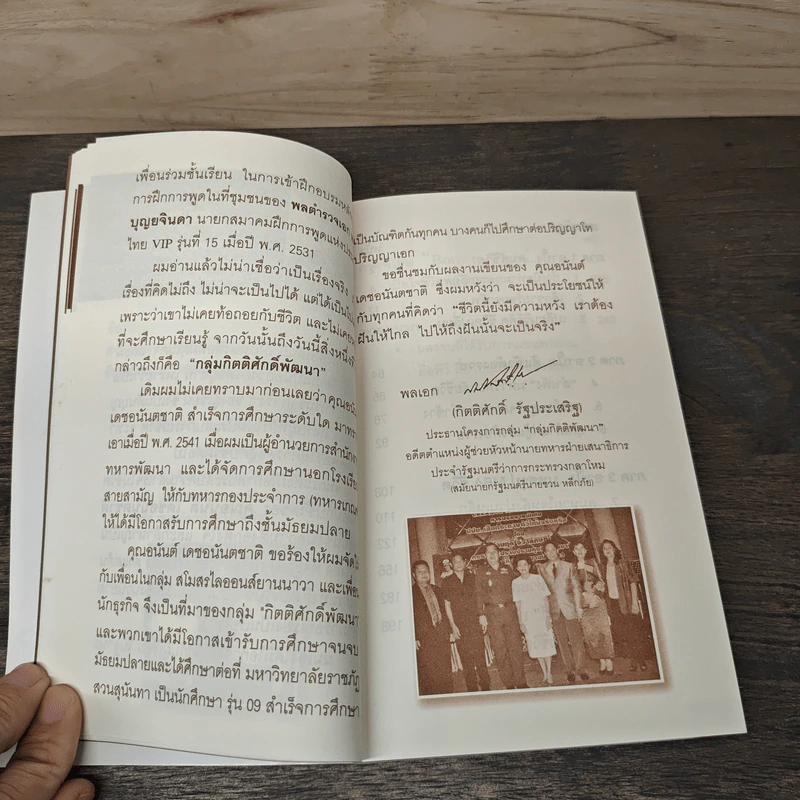 เพื่อนร่วมชั้นเรียน ในการเข้าฝึกอบรม
การฝึกการพูดในที่ชุมชนของ พลตำรวจเอก
บุญยจินดา นายกสมาคมฝึกการพูดแห่ง
ไทย VIP รุ่นที่ 15 เมื่อปี พ.ศ. 2531
ผมอ่านแล้วไม่น่าเชื่อว่าเป็นเรื่องจริง
เรื่องที่คิดไม่ถึง ไม่น่าจะเป็นไปได้ แต่ได้เป็น
เพราะว่าเขาไม่เคยท้อถอยกับชีวิต และไม่เคย
ที่จะศึกษาเรียนรู้ จากวันนั้นถึงวันนี้สิ่งหนึ่ง
กล่าวถึงก็คือ “กลุ่มกิตติศักดิ์พัฒนา”
เดิมผมไม่เคยทราบมาก่อนเลยว่า คุณอนันต์
เดชอนันตชาติ สำเร็จการศึกษาระดับใด มาทราบ
เอาเมื่อปี พ.ศ. 2541 เมื่อผมเป็นผู้อำนวยการสำนักงาน
ทหารพัฒนา และได้จัดการศึกษานอกโรงเรียน
สายสามัญ ให้กับทหารกองประจำการ (ทหารเกณฑ์
ให้ได้มีโอกาสรับการศึกษาถึงชั้นมัธยมปลาย
คุณอนันต์ เดชอนันตชาติ ขอร้องให้ผมจัดให้
กับเพื่อนในกลุ่ม สโมสรไลออนส์ยานนาวา และเพื่อน
นักธุรกิจ จึงเป็นที่มาของกลุ่ม “กิตติศักดิ์พัฒนา”
และพวกเขาได้มีโอกาสเข้ารับการศึกษาจนจบ
มัธยมปลายและได้ศึกษาต่อที่ มหาวิทยาลัยราชภัฏ
สวนสุนันทา เป็นนักศึกษา รุ่น 09 สำเร็จการศึกษา
เป็นบัณฑิตกันทุกคน บางคนก็ไปศึกษาต่อปริญญาโท
ปริญญาเอก
ขอชื่นชมกับผลงานเขียนของ คุณอนันต์
เดชอนันตชาติ ซึ่งผมหวังว่า จะเป็นประโยชน์ให้
กับทุกคนที่คิดว่า “ชีวิตนี้ยังมีความหวัง เราต้อง
ฝันให้ไกล ไปให้ถึงฝันนั้นจะเป็นจริง”
พลเอก
(กิตติศักดิ์ รัฐประเสริฐ)
ประธานโครงการกลุ่ม “กลุ่มกิตติพัฒนา”
อดีตตำแหน่งผู้ช่วยหัวหน้านายทหารฝ่ายเสนาธิการ
ประจำรัฐมนตรีว่าการกระทรวงกลาโหม
(สมัยนายกรัฐมนตรีนายชวน หลีกภัย)